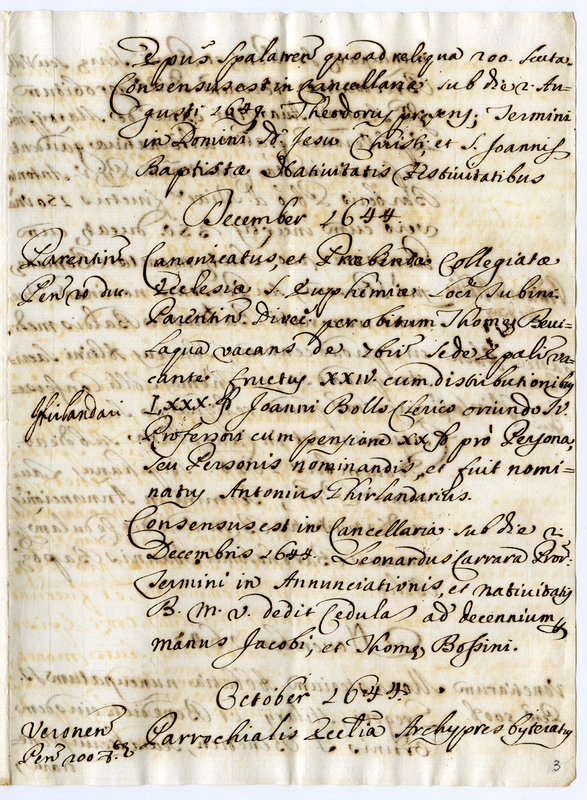 Epus Spalaten quoad reliqua 200. scuta
Consensus est in Cancellaria sub die 2. Au-
gusti 1644. Theodorus presens; Termini
in Domini Jesu Christi et S. Joannis
Baptistæ Nativitatis festivitatibus
December 1644.
Parentin
Canonicatus, et Præbenda Collegiatæ
Pens 20 duc.
Ecclesiæ S. Euphemiæ loci Rubini.
Parentin. Diœc. per obitum Thomæ Bevi-
laqua vacans de 7bri sede Epali va-
cante fructus XXIV. cum distributionibus
Ghirlandari
LXXX. Joanni Bolls Clerico oriundo
Professori cum pensione XX. pro Persona,
seu Personis nominandis, et fuit nomi-
natus Antonius Ghirlandarius.
Consensus est in Cancellaria sub die 2.
Decembris 1644. Leonardus Carrara Proc.
Termini in Annunciationis, et nativitatis
B. M. V. dedit Cedulas ad decennium
manus Jacobi, et Thomæ Bossini.
October 1644.
Veronen
Parrochialis Ecclia Archypresbyteratus
Pens 200
3